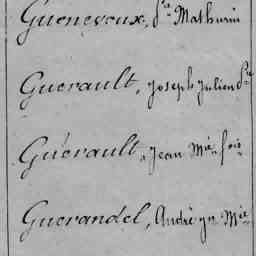 Gueneveux, Pre Mathurin
Guerault, Joseph Julien Pre
Guérault, Jean Mie fois
Guerandel, André yn Mie